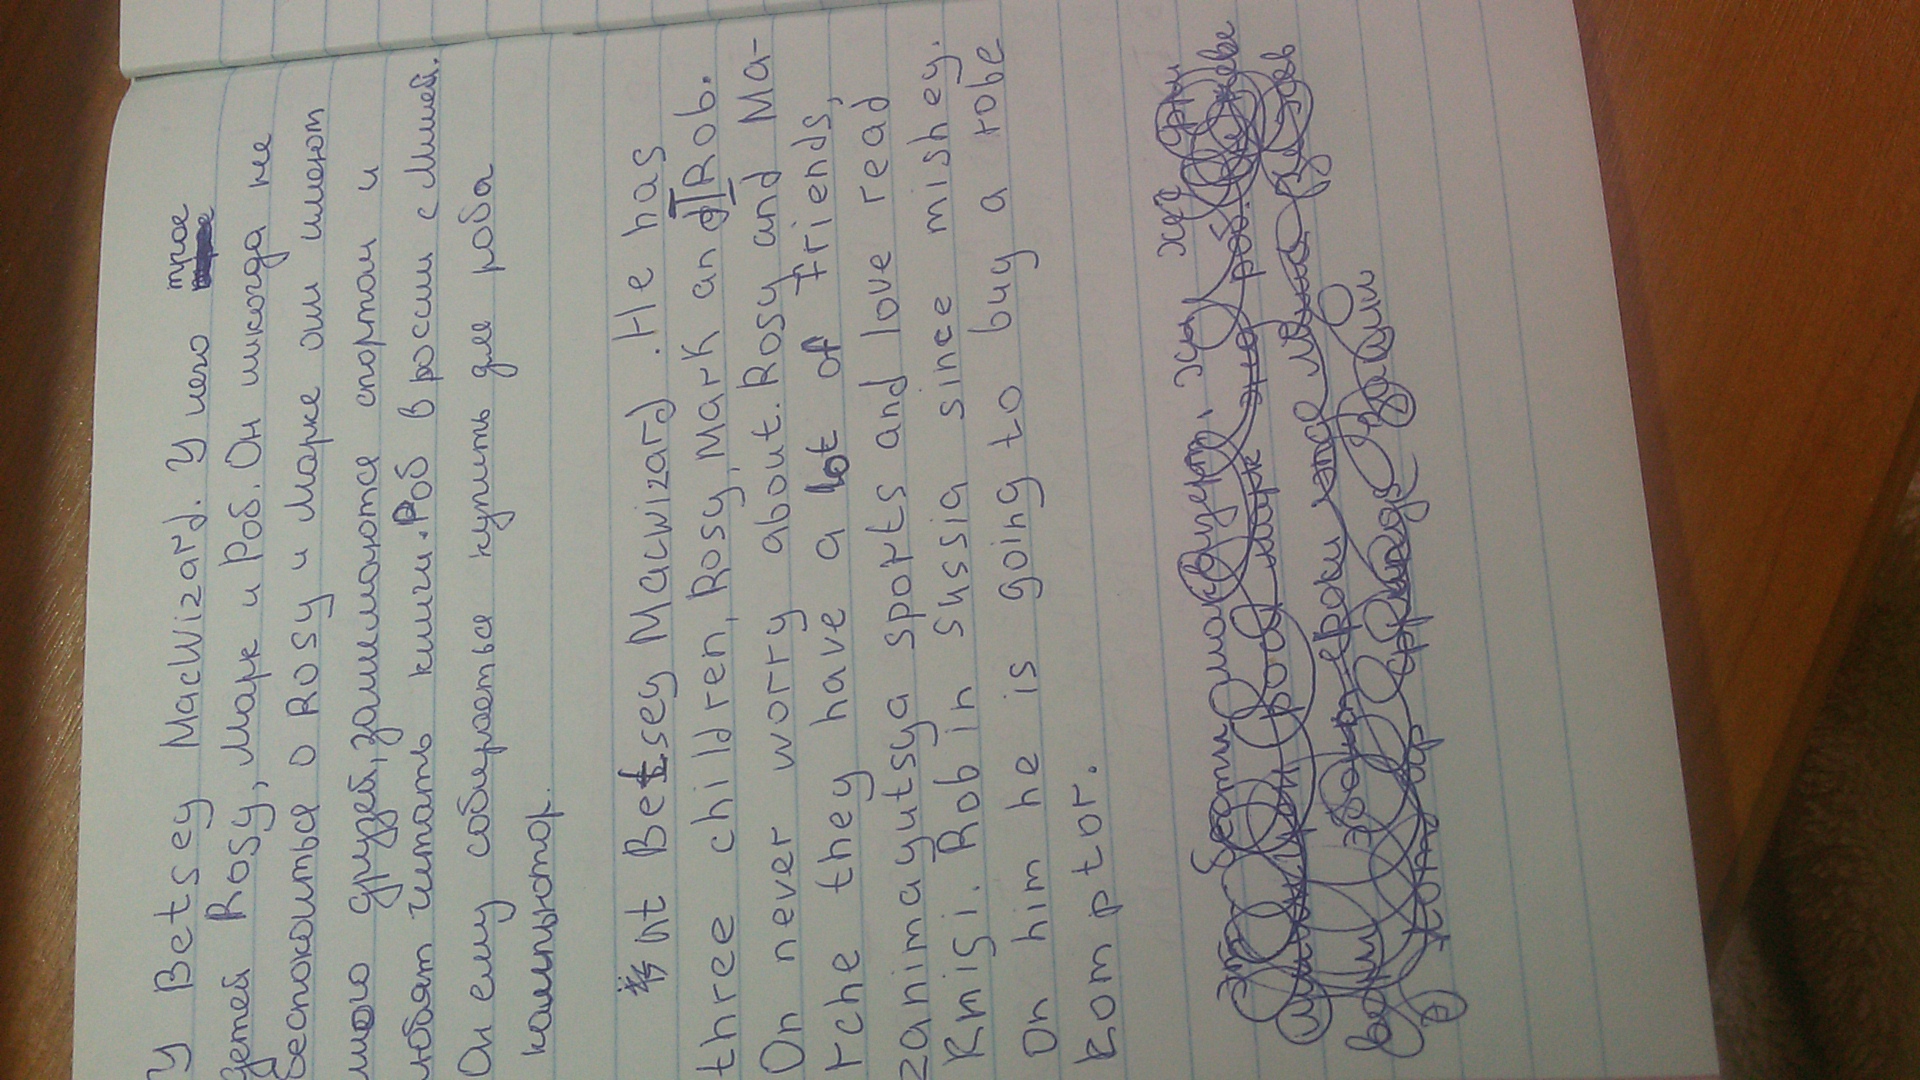 У Betsey MacWizard. У него трое
детей Rosy, Марк и Роб. Он никогда не
беспокоиться о Rosy и Марке они имеют
много друзей, занимаются спортом и
любят читать книги. Роб в россии с Мишей.
Он ему собираеться купить для роба
компьютор.
at Betsey Macwizard. He has
three children, Rosy, Mark and Rob.
On never worry about. Rosy and Ma-
rche they have a lot of friends,
zanimayutsya sports and love read
Knigi. Rob in sussia since mishey.
On him he is going to buy a robe
Komptor.
эт бести маквизерт, хи хес фри
рози марк энд роб.
вори эбаут
э лот оф фриндс